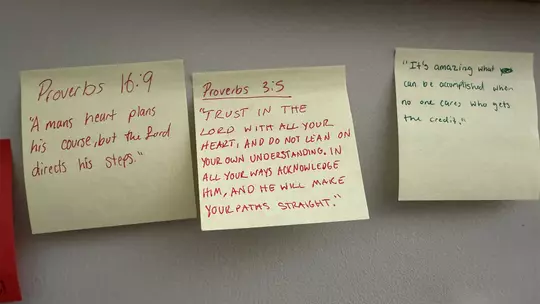 Proverbs 16:9
"A mans heart plans
his course, but the Lord
directs his steps."
Proverbs 3:5
"TRUST IN THE
LORD WITH ALL YOUR
HEART, AND DO NOT LEAN ON
YOUR OWN UNDERSTANDING. IN
ALL YOUR WAYS ACKNOWLEDGE
HIM, AND HE WILL MAKE
YOUR PATHS STRAIGHT."
"It's amazing what
can be accomplished when
no one cares who gets
the credit."